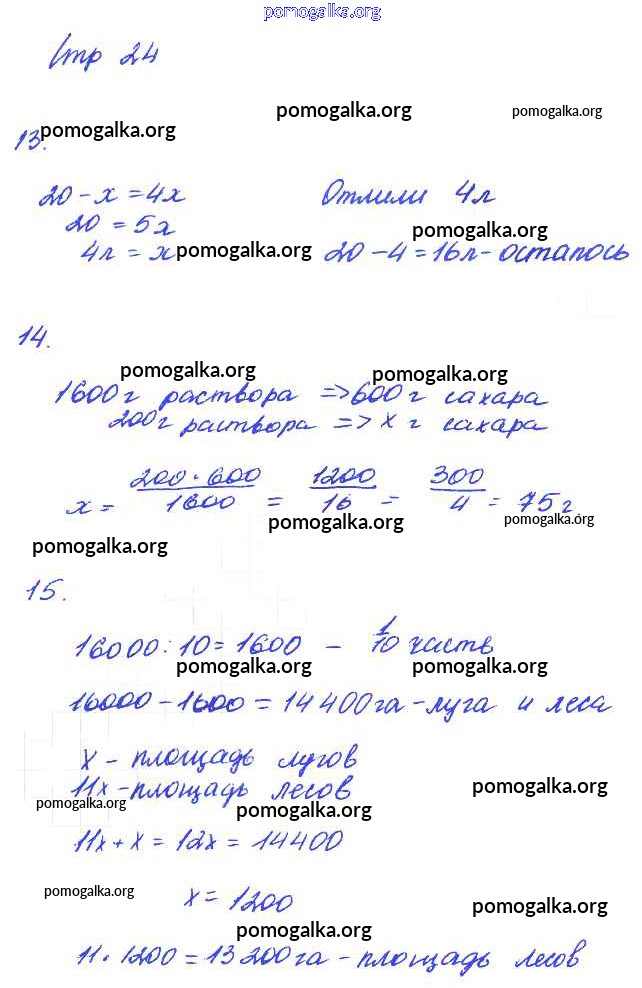 pomogalka.org
Стр 24
pomogalka.org pomogalka.org
13. pomogalka.org
20 - x = 4x Отлили 4л
20 = 5x pomogalka.org
4л = x pomogalka.org 20 - 4 = 16л - осталось
14.
pomogalka.org pomogalka.org
1600г раствора => 600г сахара
200г раствора => x г сахара
x = 200·600/1600 = 1200/16 = 300/4 = 75г
pomogalka.org pomogalka.org
pomogalka.org
15.
16000 : 10 = 1600 - 1/10 часть
pomogalka.org pomogalka.org
16000 - 1600 = 14400га - луга и леса
x - площадь лугов
11x - площадь лесов pomogalka.org
pomogalka.org pomogalka.org
11x + x = 12x = 14400
pomogalka.org x = 1200 pomogalka.org
pomogalka.org
11·1200 = 13200га - площадь лесов